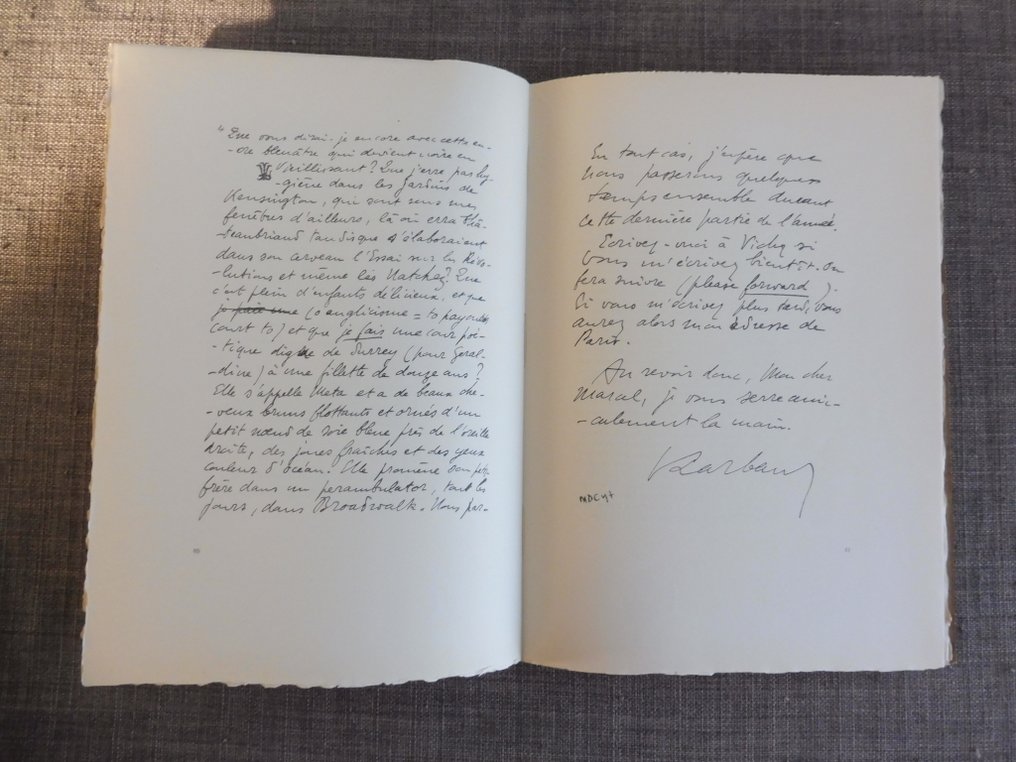 "Que vous dirai-je encore avec cette en-
-cre bleuâtre qui devient noire en
vieillissant? Que j'erre par hy-
-giène dans les Jardins de
Kensington, qui sont sous mes
fenêtres d'ailleurs, là où erra Châ-
-teaubriand tandis que s'élaboraient
dans son cerveau l'Essai sur les Révo-
-lutions et même les Natchez? Que
c'est plein d'enfants délicieux, et que
je fais une (o anglicisme = to pay one's
court to) et que je fais une cour poé-
-tique digne de Surrey (pour Geral-
-dine) à une fillette de douze ans?
Elle s'appelle Meta et a de beaux che-
-veux bruns flottants et ornés d'un
petit nœud de soie bleue près de l'oreille
droite, des joues fraîches et des yeux
couleur d'océan. Elle promène son petit
frère dans un perambulator, tout les
jours, dans Broadwalk. Nous par-
En tout cas, j'espère que
nous passerons quelques
temps ensemble durant
cette dernière partie de l'année.
Ecrivez-moi à Vichy si
vous m'écrivez bientôt. On
fera suivre (please forward).
Si vous m'écrivez plus tard, vous
aurez alors mon adresse de
Paris.
Au revoir donc, Mon cher
Marcel, je vous serre amic-
-calement la main.
V Larbaud